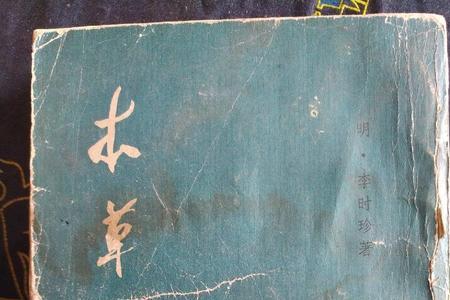 明·李时珍著
本草